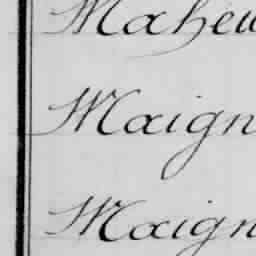 Maheu
Maign
Maign